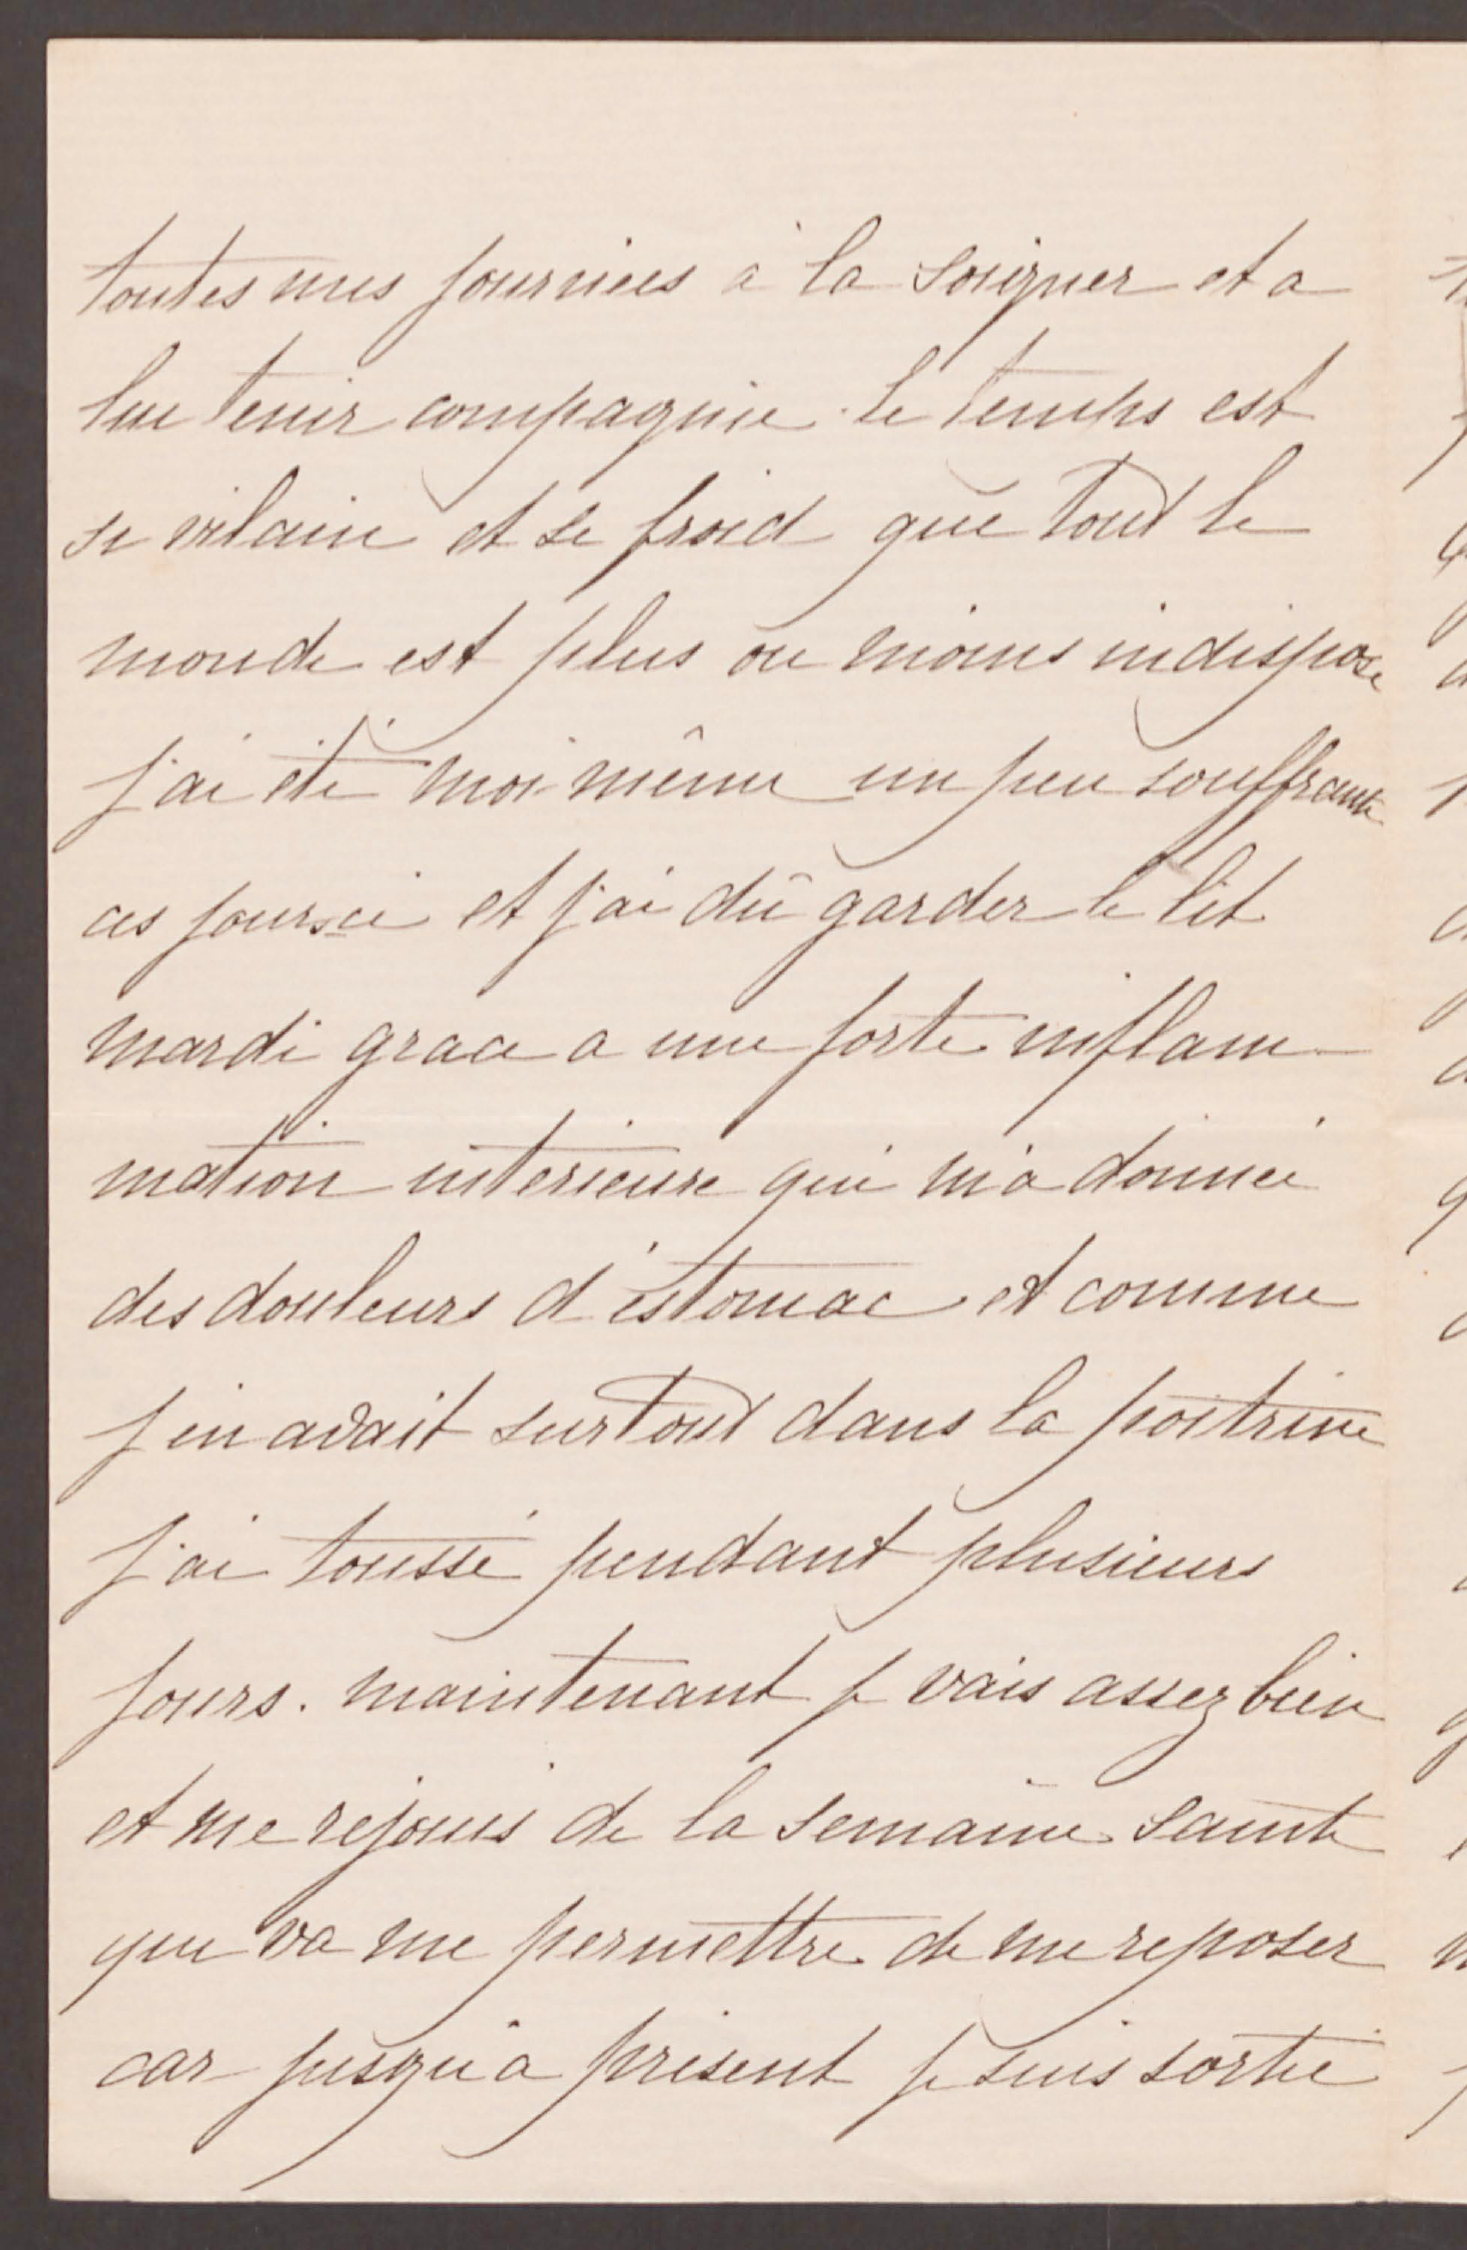 toutes mes journées à la soigner et a
lui tenir compagnie. le temps est
si vilain et si froid que tout le
monde est plus ou moins indispose
j'ai été moi-même un peu souffrante
ces jours-ci et j'ai dû garder le lit
mardi grace a une forte inflam-
mation interieure qui m'a donné
des douleurs d'estomac et comme
j'en avait surtout dans la poitrine
j'ai toussé pendant plusieurs
jours. maintenant je vais assez bien
et me rejouis de la semaine sainte
qui va me permettre de me reposer
car jusqu'a présent je suis sortie